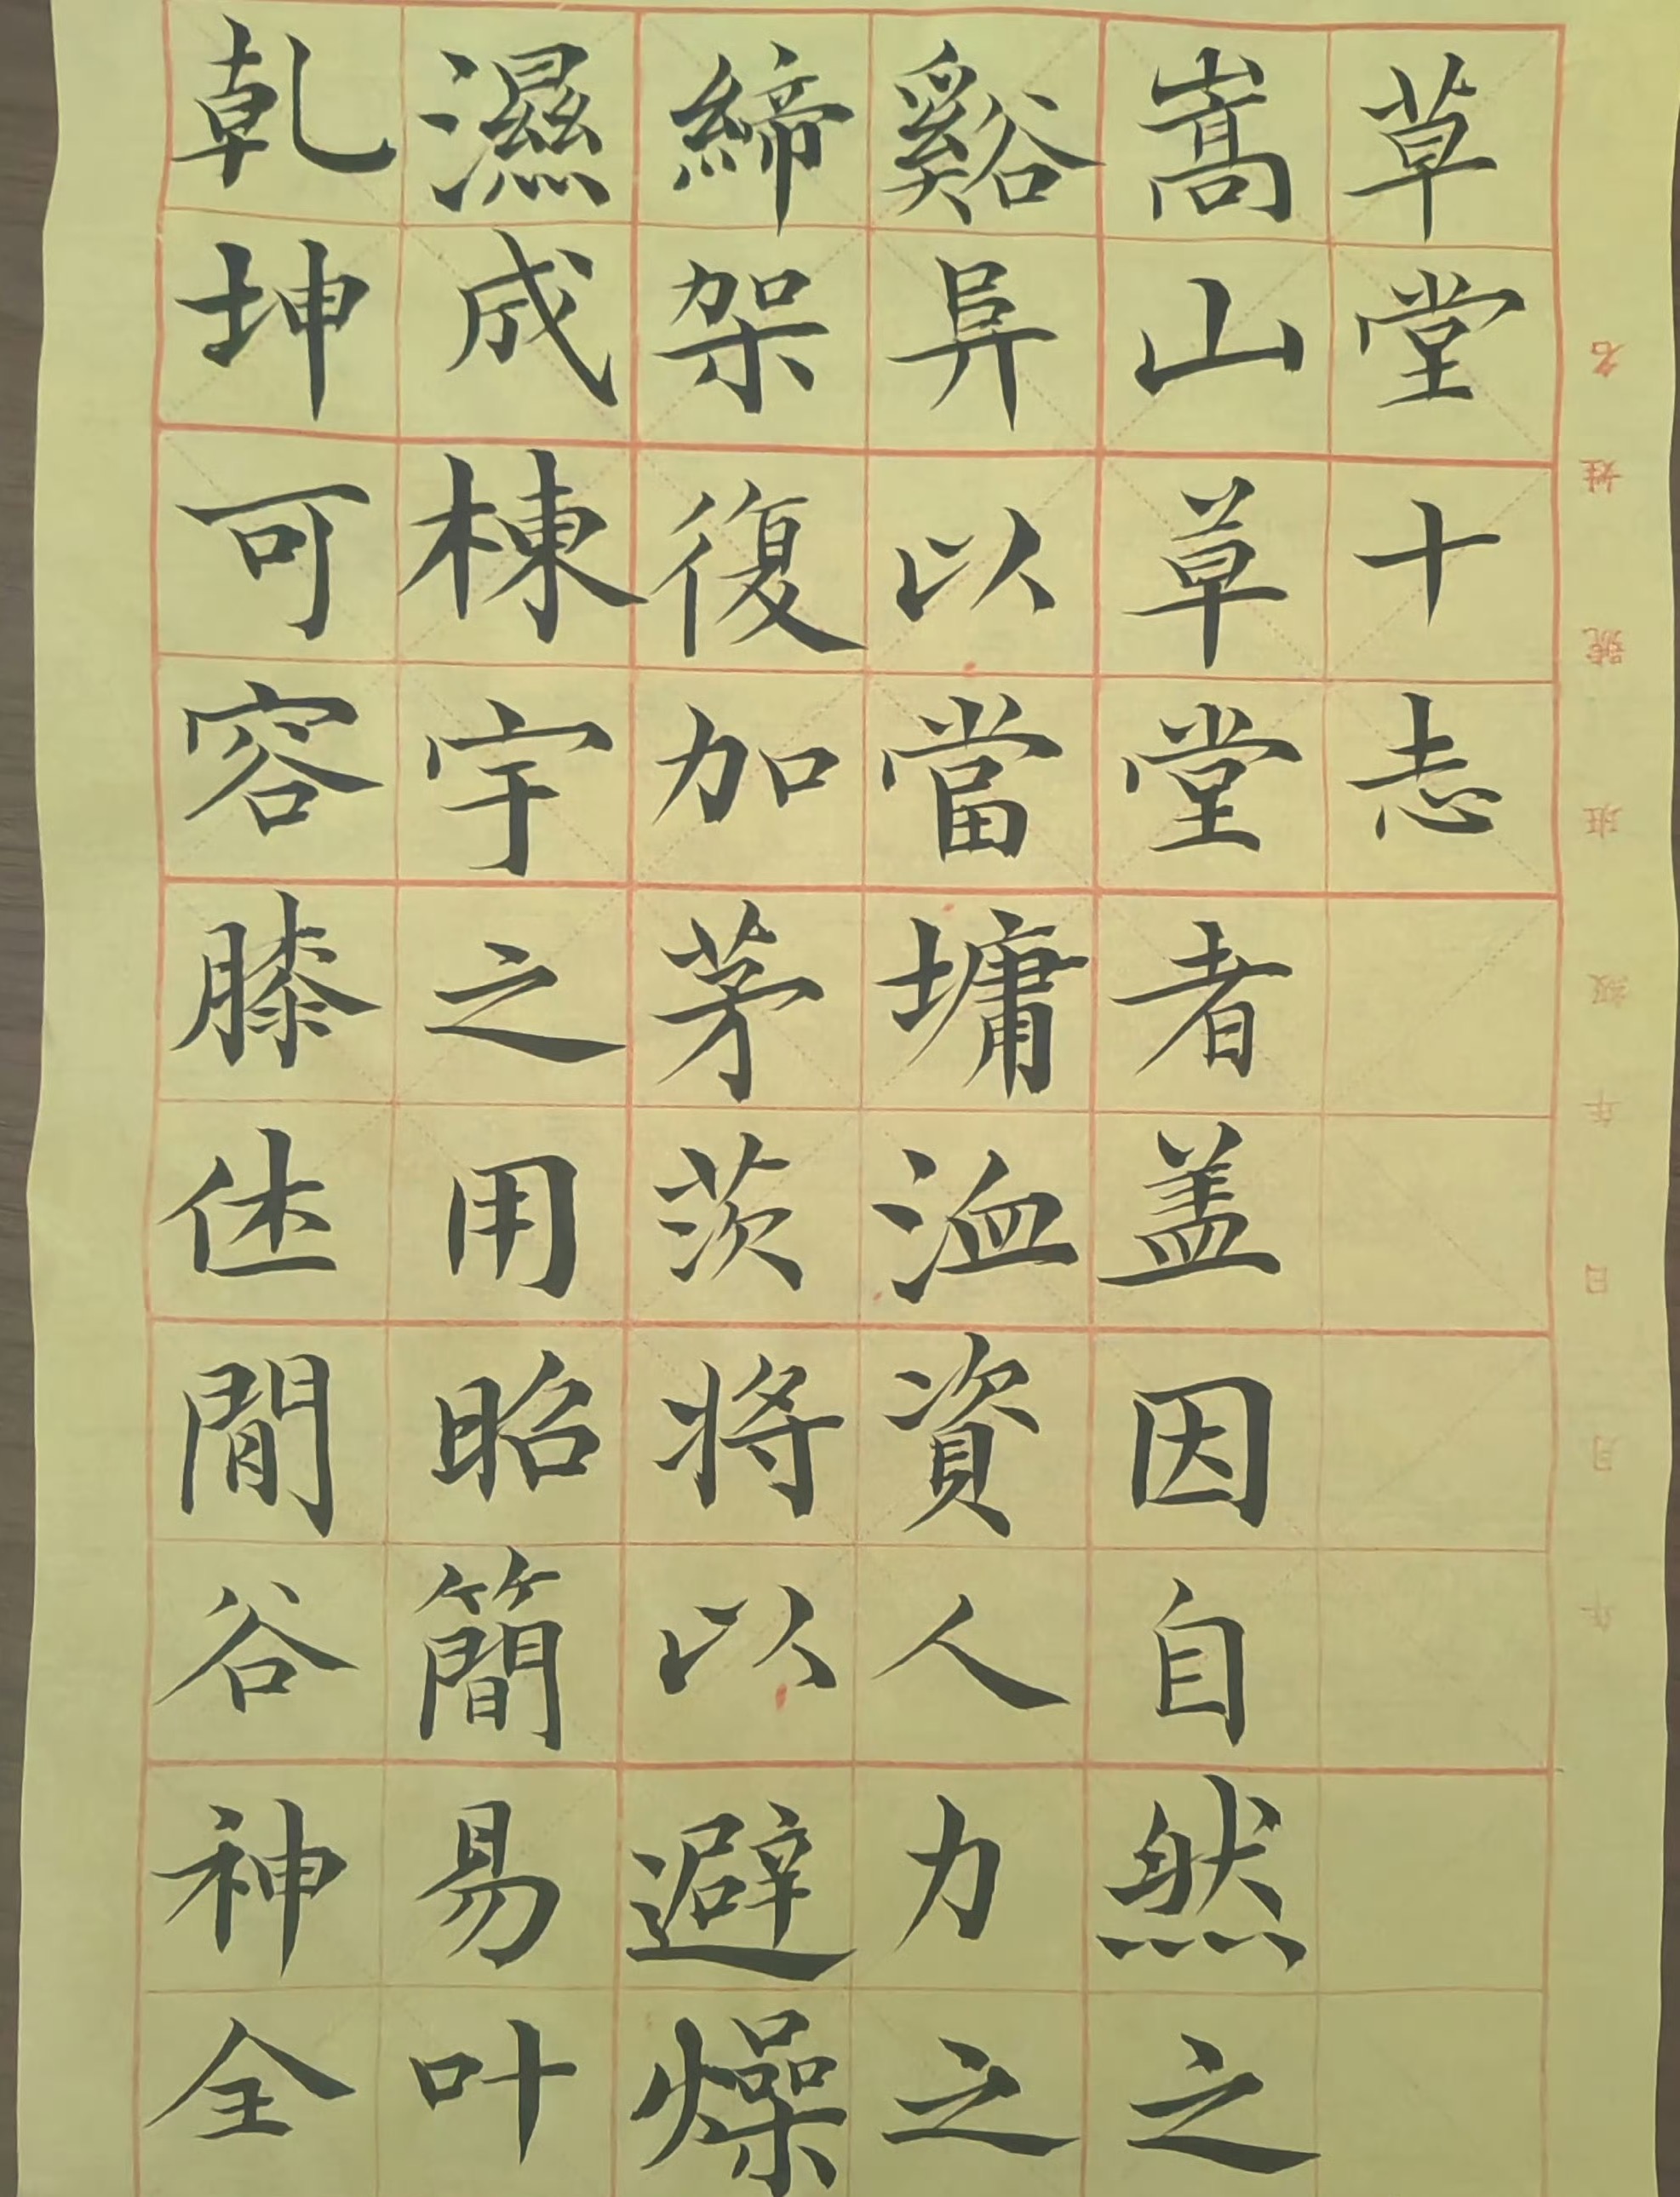 草堂十志
嵩山草堂者盖因自然之
谿阜以當墉洫資人力之
締架復加茅茨將以避燥
濕成棟宇之用昭簡易叶
乾坤可容膝休閒谷神全
年月日年級班號姓名